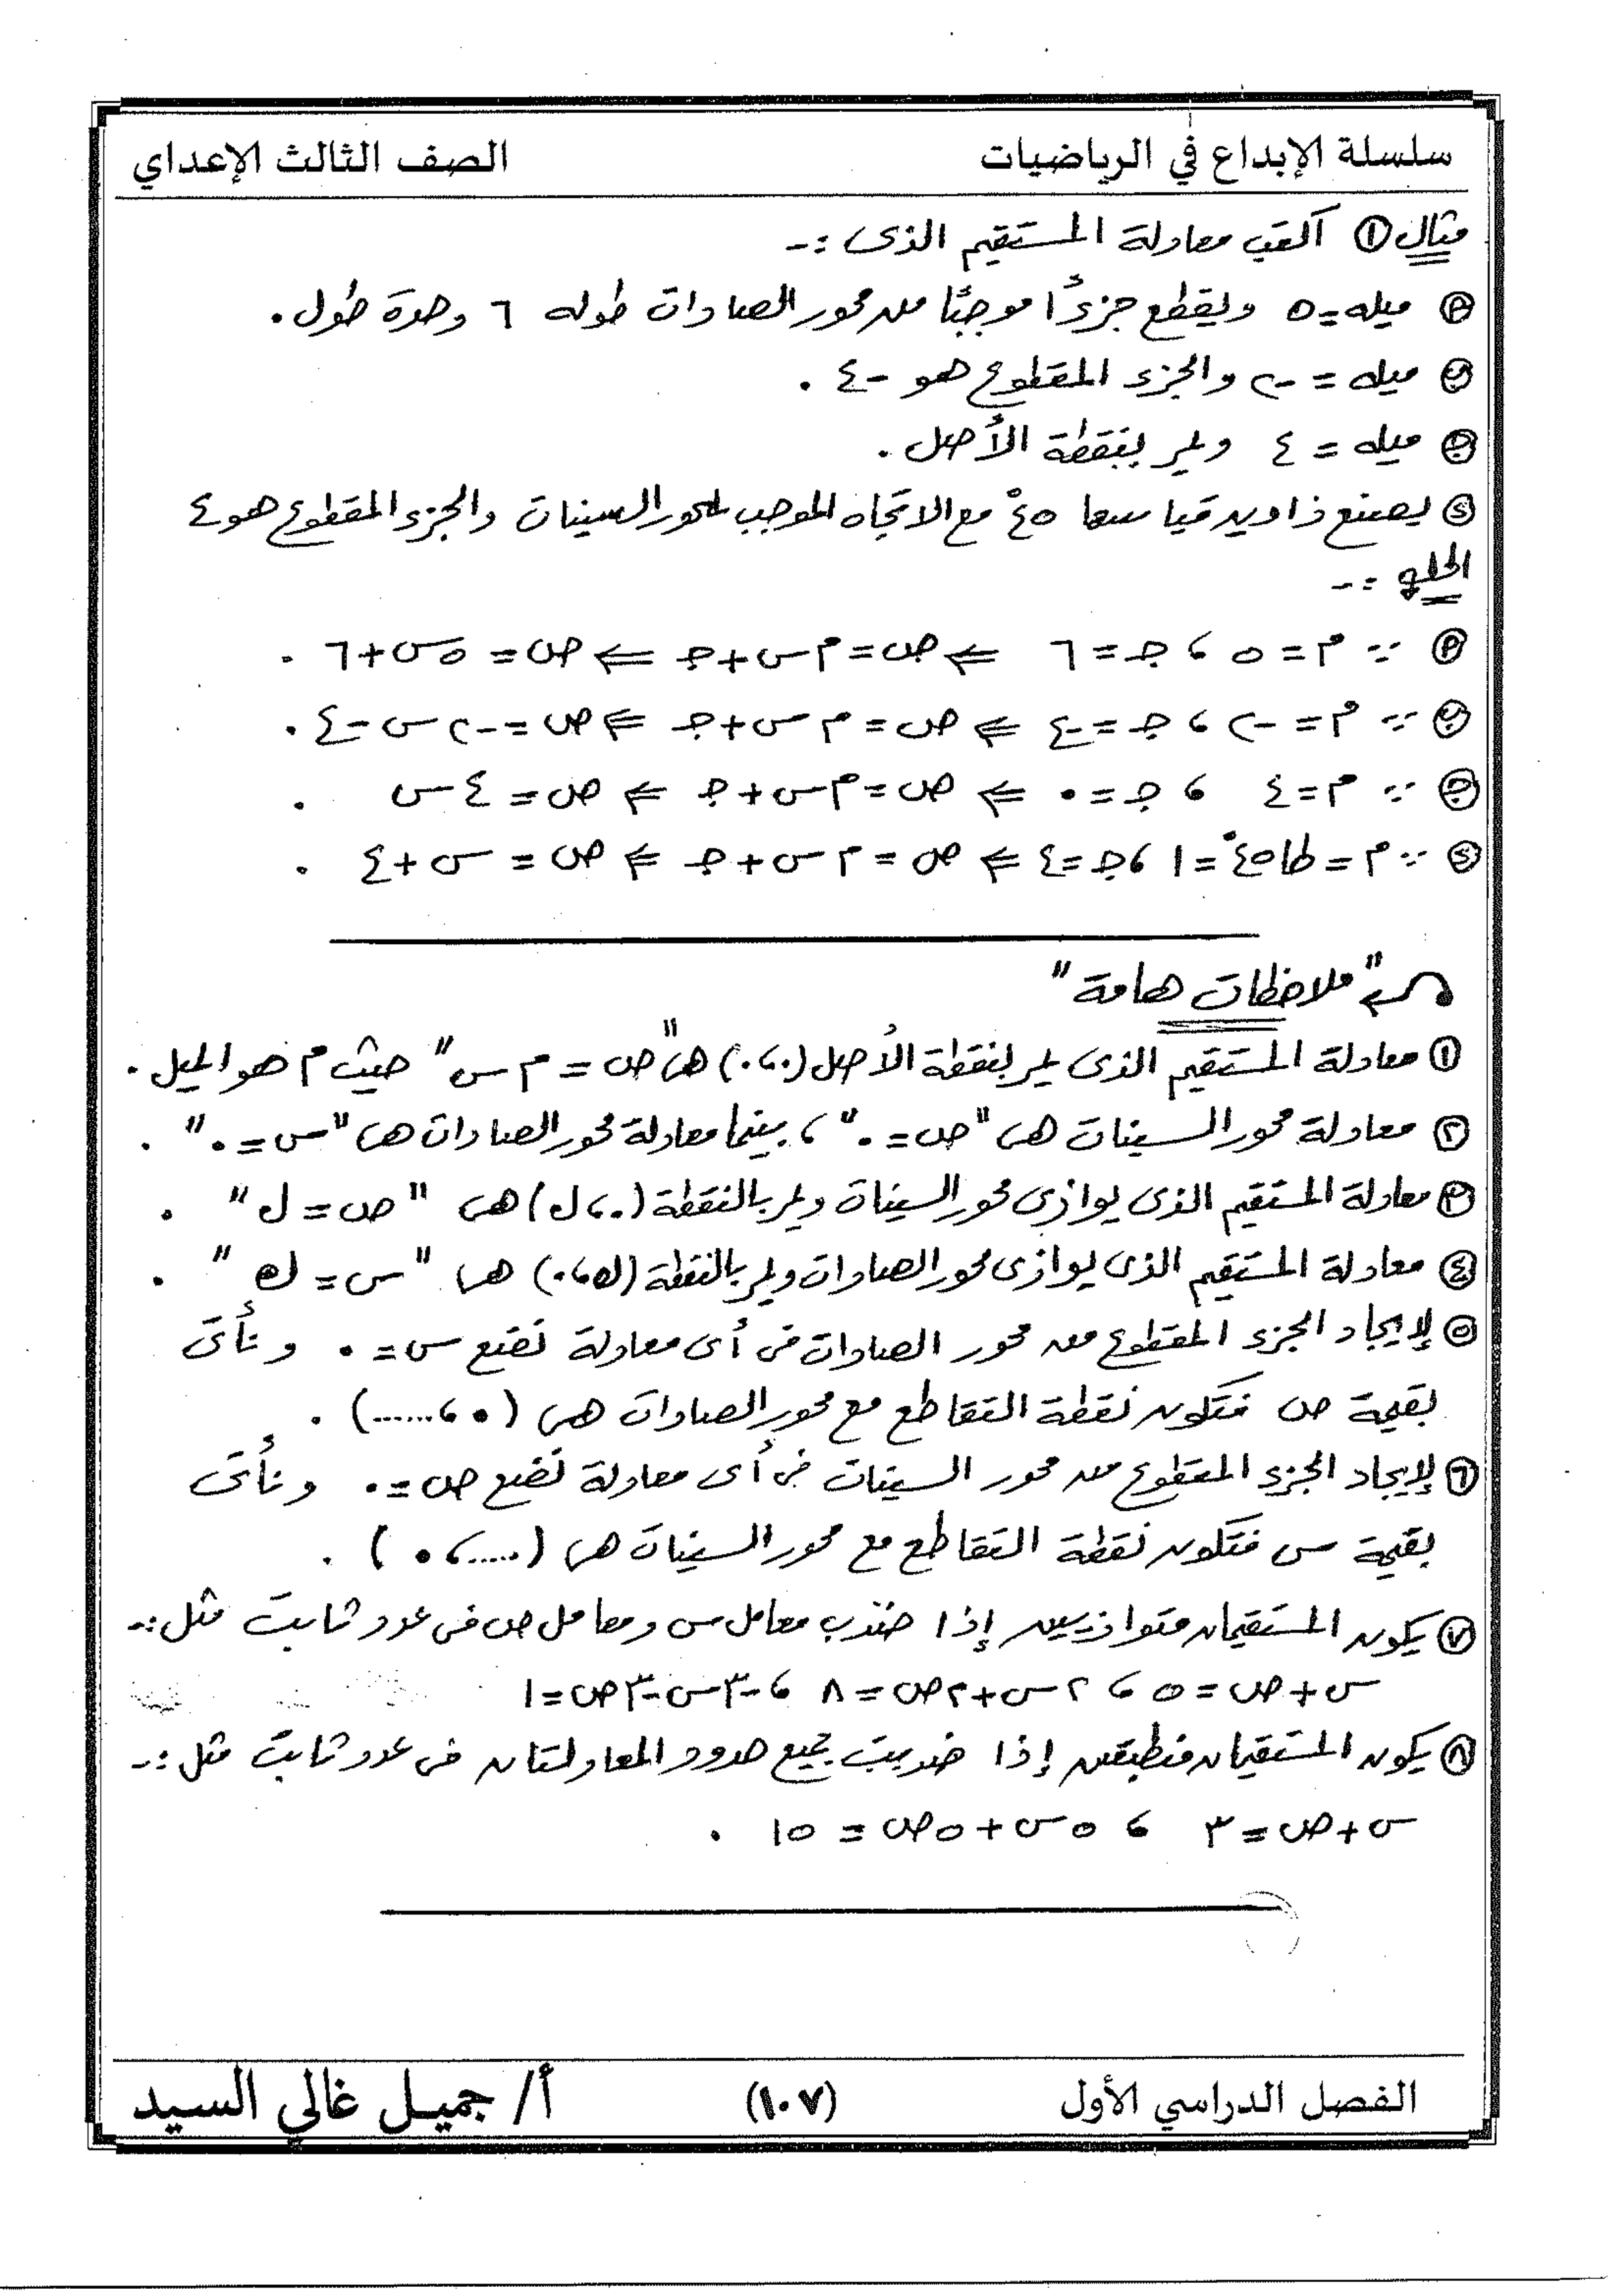 سلسلة الإبداع في الرياضيات
الصف الثالث الإعداي
مثال ① أكتب معادلة المستقيم الذى :-
Ⓟ ميله = ٥ ويقطع جزءًا موجبًا من محور الصادات طوله ٦ وحدة طول .
ⓑ ميله = -٢ والجزء المقطوع هو -٤ .
ⓙ ميله = ٤ ويمر بنقطة الأصل .
ⓓ يصنع زاوية قياسها ٤٥° مع الاتجاه الموجب لمحور السينات والجزء المقطوع هو ٤
الحل :-
Ⓟ ∵ م = ٥ ، جـ = ٦ ⇐ ص = م س + جـ ⇐ ص = ٥س + ٦ .
ⓑ ∵ م = -٢ ، جـ = -٤ ⇐ ص = م س + جـ ⇐ ص = -٢س - ٤ .
ⓙ ∵ م = ٤ ، جـ = ٠ ⇐ ص = م س + جـ ⇐ ص = ٤س .
ⓓ ∵ م = طا٤٥° = ١ ، جـ = ٤ ⇐ ص = م س + جـ ⇐ ص = س + ٤ .
"ملاحظات هامة"
① معادلة المستقيم الذى يمر بنقطة الأصل (٠،٠) هى "ص = م س" حيث م هو الميل .
② معادلة محور السينات هى "ص = ٠" ، بينما معادلة محور الصادات هى "س = ٠" .
③ معادلة المستقيم الذى يوازى محور السينات ويمر بالنقطة (٠، ل) هى "ص = ل" .
④ معادلة المستقيم الذى يوازى محور الصادات ويمر بالنقطة (ك،٠) هى "س = ك" .
⑤ لإيجاد الجزء المقطوع من محور الصادات فى أى معادلة نضع س = ٠ ونأتى
بقيمة ص فتكون نقطة التقاطع مع محور الصادات هى (٠،......) .
⑥ لإيجاد الجزء المقطوع من محور السينات فى أى معادلة نضع ص = ٠ ونأتى
بقيمة س فتكون نقطة التقاطع مع محور السينات هى (......،٠) .
⑦ يكون المستقيمان متوازيين إذا ضرب معامل س ومعامل ص فى عدد ثابت مثل :-
س + ص = ٥ ، ٢س + ٢ص = ٨ ، -٣س - ٣ص = ١
⑧ يكون المستقيمان منطبقين إذا ضربت جميع حدود المعادلتان فى عدد ثابت مثل :-
س + ص = ٣ ، ٥س + ٥ص = ١٥ .
الفصل الدراسي الأول
(١٠٧)
أ/ جميل غالي السيد